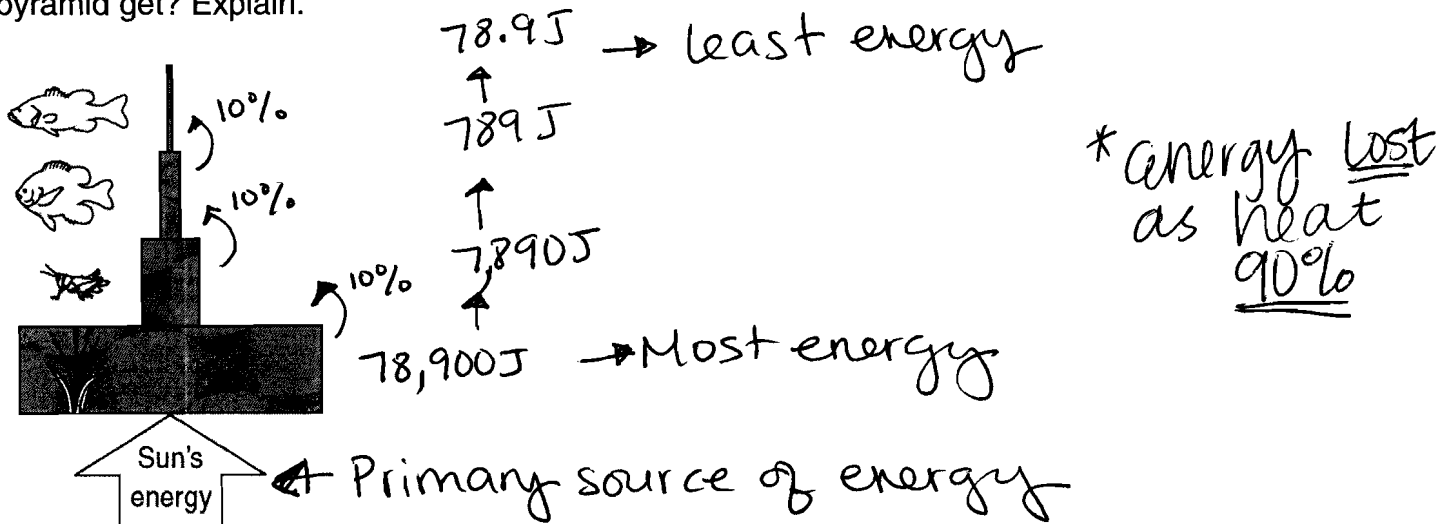 pyramid get? Explain.
78.9J → least energy
10%
789 J
10%
7,890J
10%
78,900J → Most energy
* energy lost
as heat
90%
Sun's
energy
Primary source of energy